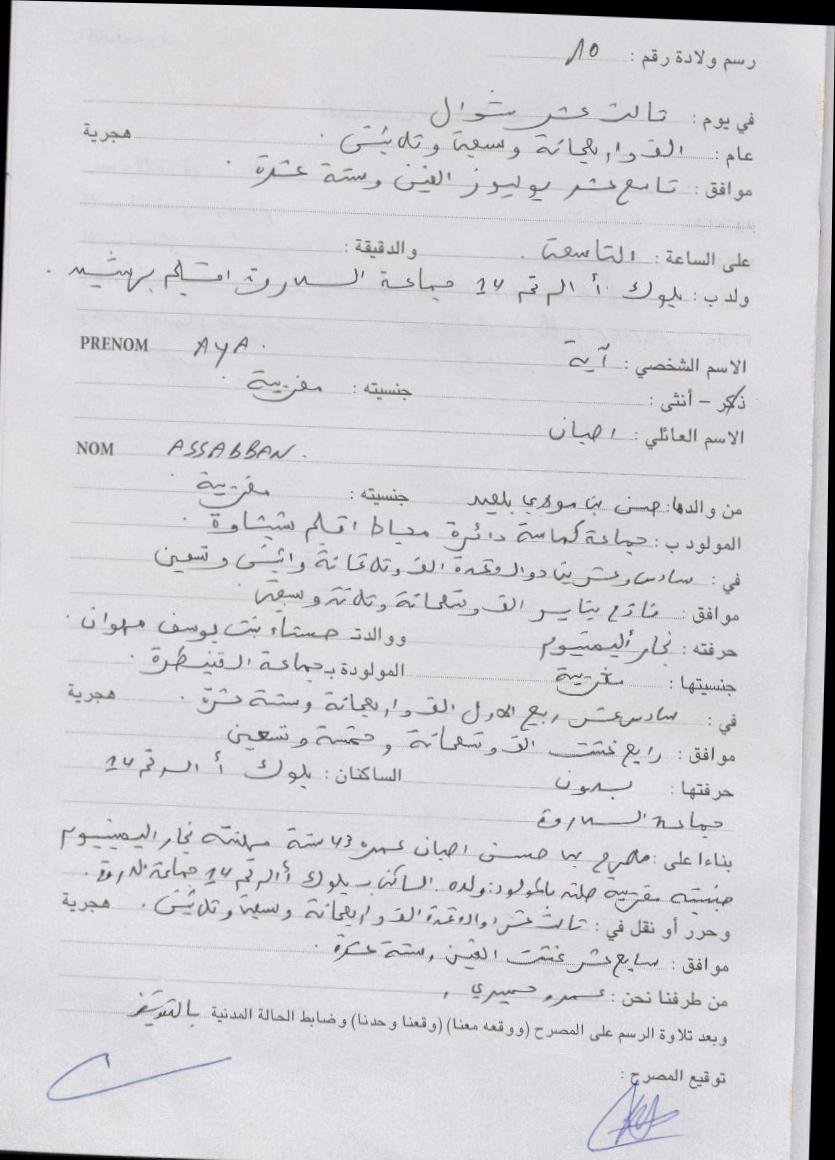 رسم ولادة رقم : 10
في يوم : ثالث عشر شوال
عام : الف واربعمائة وسبعة وثلاثين هجرية
موافق : تاسع عشر يوليوز الفين وستة عشرة
على الساعة : التاسعة والدقيقة :
ولد ب : بلوك أ الرقم 14 جماعة السدروة اقليم برشيد
الاسم الشخصي : آية AYA PRENOM
ذكر – أنثى : جنسيته : مغربية
الاسم العائلي : اصبان
ASSABBAN NOM
من والدها : حسن بن مولاي بلعيد جنسيته : مغربية
المولود ب : جماعة كماسة دائرة مجاط اقليم شيشاوة
في : سادس وعشرين ذو القعدة الف وثلاثمائة واثنين وتسعين
موافق : فاتح يناير الف وتسعمائة وثلاثة وسبعين
حرفته : نجار أليمنيوم ووالدته حسناء بنت يوسف
جنسيتها : مغربية المولودة ب جماعة القنيطرة
في : سادس عشر ربيع الاول الف واربعمائة وستة عشرة هجرية
موافق : رابع عشر غشت الف وتسعمائة وخمسة وتسعين
حرفتها : بدون الساكنان : بلوك أ الرقم 14
جماعة السدروة
بناءا على : ماصرح به حسن اصبان عمره 43 سنة مهنته نجار اليمنيوم
جنسيته مغربية صلته بالمولود : والده الساكن ب بلوك أ الرقم 14 جماعة
وحرر أو نقل في : ثالث عشر ذو القعدة الف واربعمائة وسبعة وثلاثين هجرية
موافق : سابع عشر غشت الفين وستة عشرة
من طرفنا نحن : عمر
وبعد تلاوة الرسم على المصرح (ووقعه معنا) (وقعنا وحدنا) وضابط الحالة المدنية بالتفويض
توقيع المصرح :